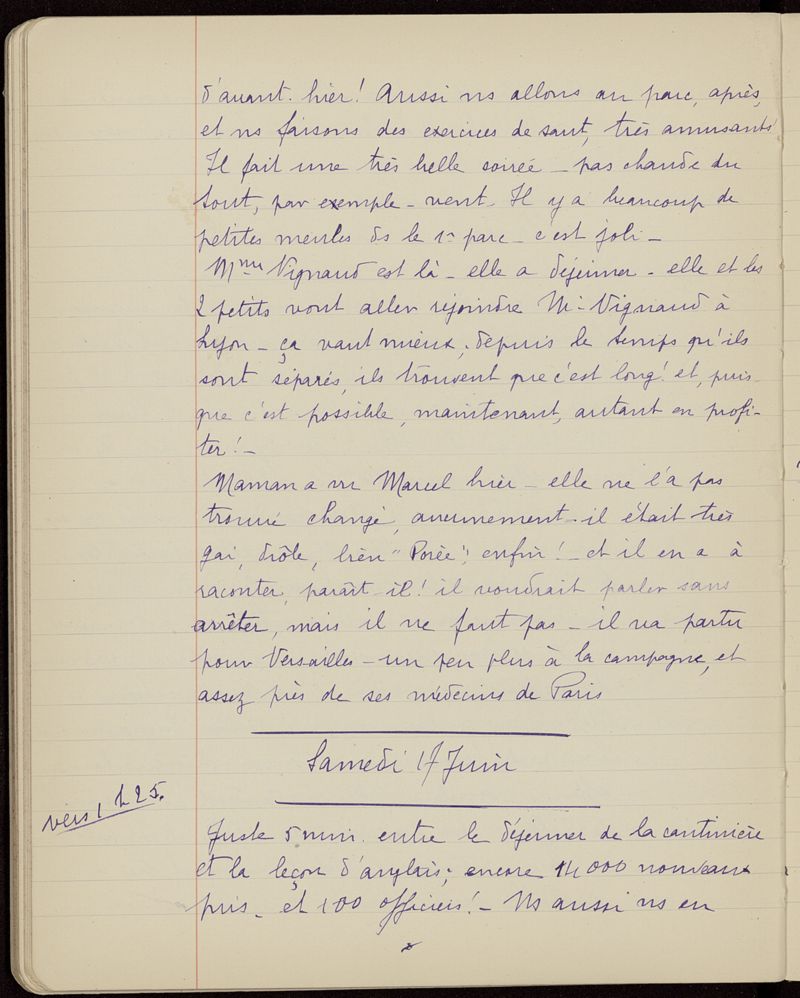 d'avant-hier! Aussi ns allons au parc, après,
et ns faisons des exercices de saut, très amusants
Il fait une très belle soirée – pas chaude du
tout, par exemple – vent. Il y a beaucoup de
petites meules ds le 1er parc – c'est joli –
Mme Vignaud est là – elle a déjeuner – elle et les
2 petits vont aller rejoindre Mr Vignaud à
Lyon – ça vaut mieux, depuis le temps qu'ils
sont séparés, ils trouvent que c'est long! et, puis-
que c'est possible, maintenant, autant en profi-
ter! –
Maman a vu Marcel hier – elle ne l'a pas
trouvé changé, aucunement – il était très
gai, drôle, bien "Porée", enfin! – et il en a à
raconter, paraît-il! il voudrait parler sans
arrêter, mais il ne faut pas – il va partir
pour Versailles – un peu plus à la campagne, et
assez près de ses médecins de Paris
Samedi 17 Juin
vers 1h25.
Juste 5 min. entre le déjeuner de la cantinière
et la leçon d'anglais; encore 14000 nouveaux
pris – et 100 officiers! – Ns aussi ns en